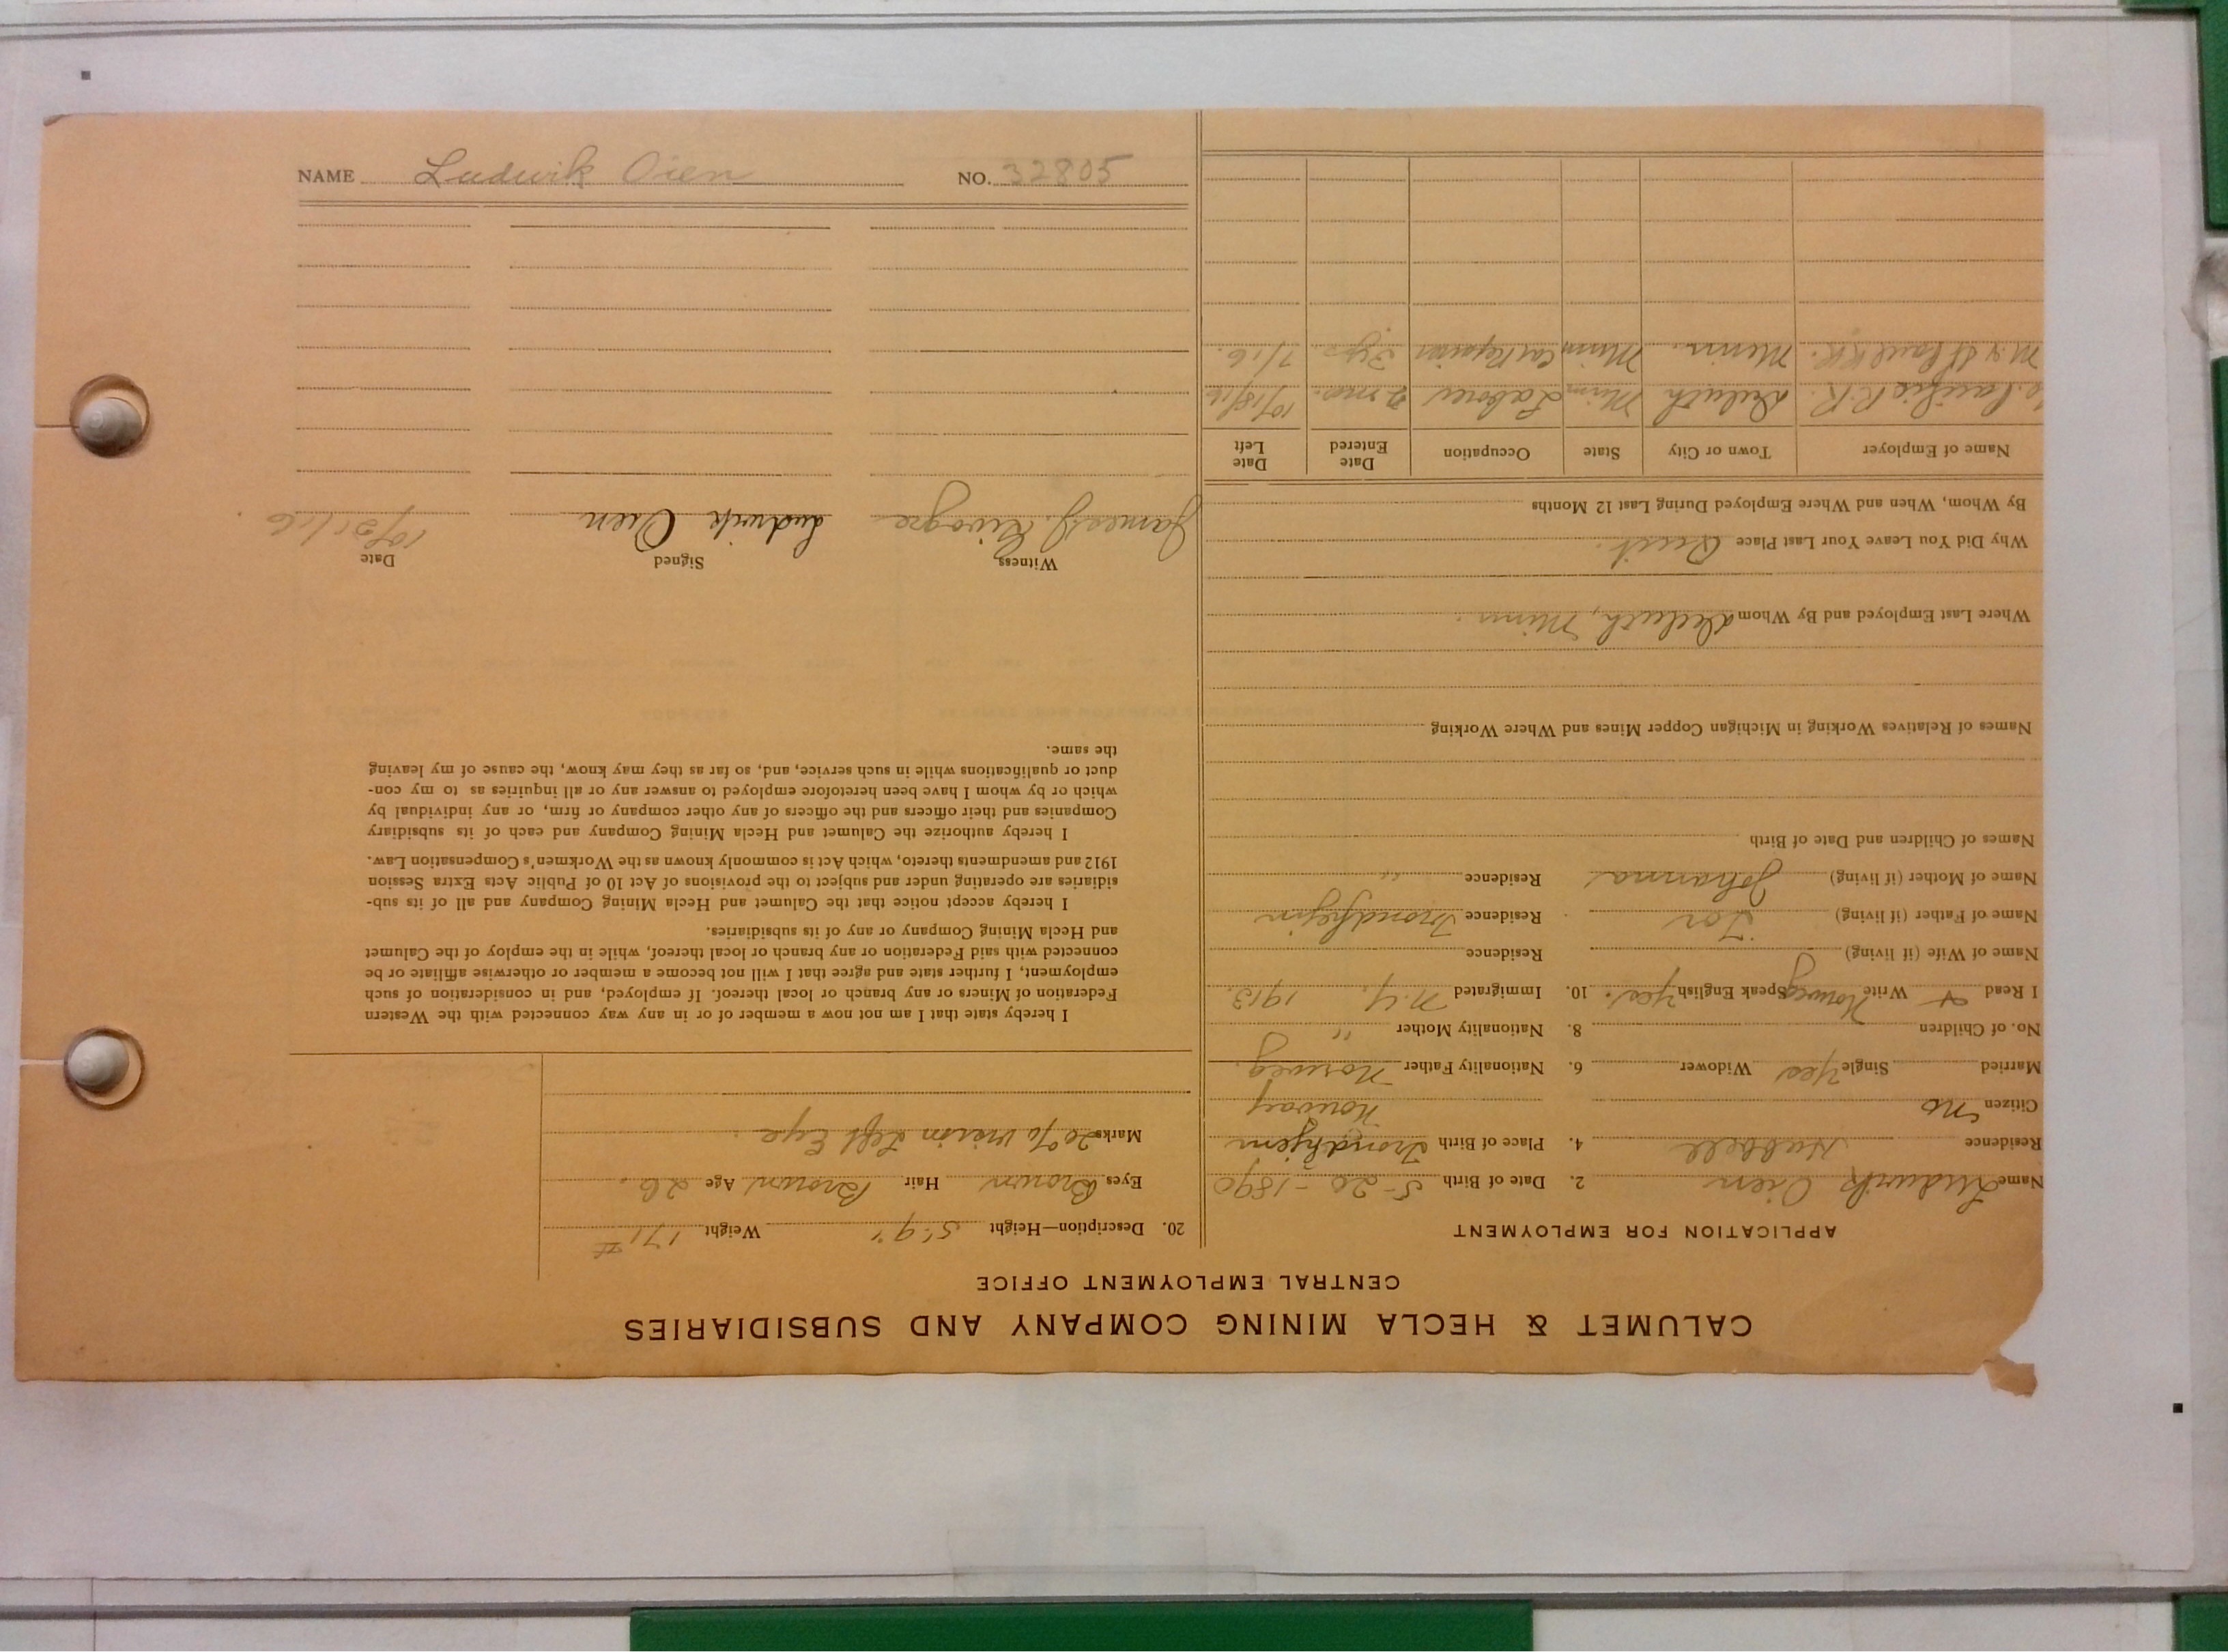 CALUMET & HECLA MINING COMPANY AND SUBSIDIARIES
CENTRAL EMPLOYMENT OFFICE
APPLICATION FOR EMPLOYMENT
Name Ludwik Oien 2. Date of Birth 5-20-1890
Residence Hubbell 4. Place of Birth Trondhjem
Citizen no Norway
Married Single Yes Widower 6. Nationality Father Norweg.
No. of Children 8. Nationality Mother "
I Read & Write Norweg Speak English Yes. 10. Immigrated N.Y. 1913.
Name of Wife (if living) Residence
Name of Father (if living) Tor Residence Trondhejm
Name of Mother (if living) Johanna Residence "
Names of Children and Date of Birth
Names of Relatives Working in Michigan Copper Mines and Where Working
Where Last Employed and By Whom Duluth, Minn.
Why Did You Leave Your Last Place Quit.
By Whom, When and Where Employed During Last 12 Months
Name of Employer Town or City State Occupation Date Entered Date Left
Pacific R.R. Duluth Minn Laborer 2 mo. 10/18/16
M & St Paul RR. Minn. Minn Car Repairer 7/16.
20. Description—Height 5'9" Weight 171#
Eyes Brown Hair Brown Age 26.
Marks 20% vision Left Eye.
I hereby state that I am not now a member of or in any way connected with the Western
Federation of Miners or any branch or local thereof. If employed, and in consideration of such
employment, I further state and agree that I will not become a member or otherwise affiliate or be
connected with said Federation or any branch or local thereof, while in the employ of the Calumet
and Hecla Mining Company or any of its subsidiaries.
I hereby accept notice that the Calumet and Hecla Mining Company and all of its sub-
sidiaries are operating under and subject to the provisions of Act 10 of Public Acts Extra Session
1912 and amendments thereto, which Act is commonly known as the Workmen's Compensation Law.
I hereby authorize the Calumet and Hecla Mining Company and each of its subsidiary
Companies and their officers and the officers of any other company or firm, or any individual by
which or by whom I have been heretofore employed to answer any or all inquiries as to my con-
duct or qualifications while in such service, and, so far as they may know, the cause of my leaving
the same.
Witness Signed Date
James J. Ludwik Oien 10/21/16
NAME Ludwik Oien NO. 32805